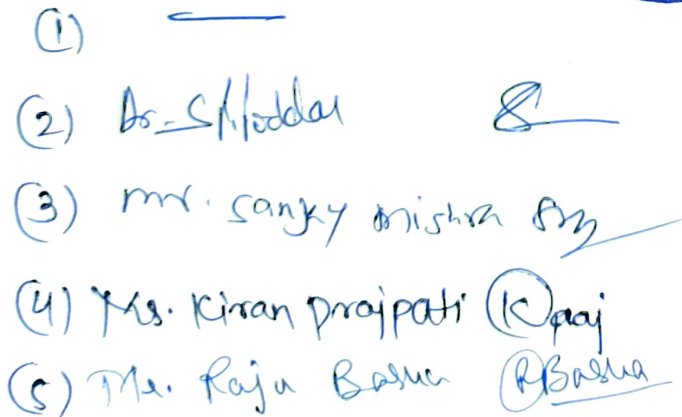 (1) —
(2) Dr. S Poddar
(3) mr. sanjky mishra
(4) Ms. Kiran prajpati Kpraj
(5) Mr. Raju Basha RBasha